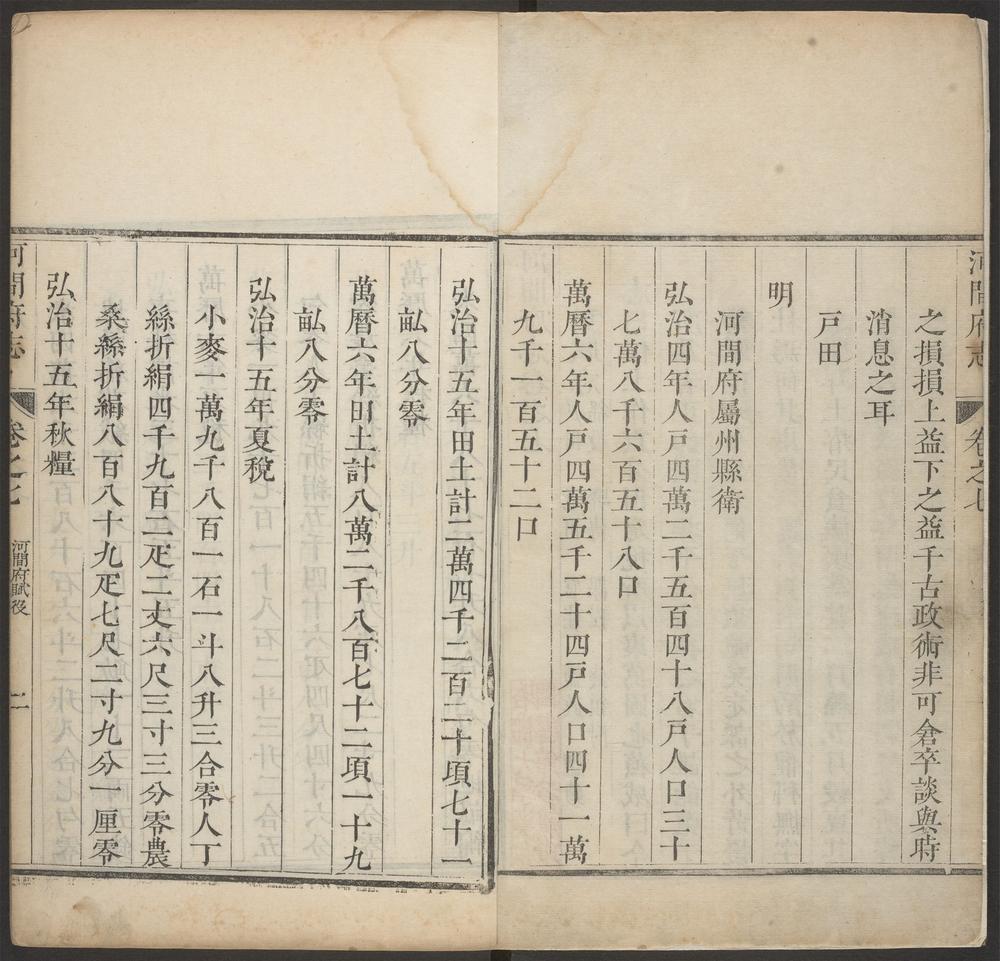 河間府志
卷之七
之損損上益下之益千古政術非可倉卒談與時
消息之耳
戸田
明
河間府屬州縣衛
弘治四年人戸四萬二千五百四十八戸人口三十
七萬八千六百五十八口
萬曆六年人戸四萬五千二十四戸人口四十一萬
九千一百五十二口
弘治十五年田土計二萬四千二百二十頃七十一
畆八分零
萬曆六年田土計八萬二千八百七十二頃一十九
畆八分零
弘治十五年夏稅
小麥一萬九千八百一石一斗八升三合零人丁
絲折絹四千九百二疋二丈六尺三寸三分零農
桑絲折絹八百八十九疋七尺二寸九分一厘零
弘治十五年秋糧
河間府志
卷之七
河間府賦役
二